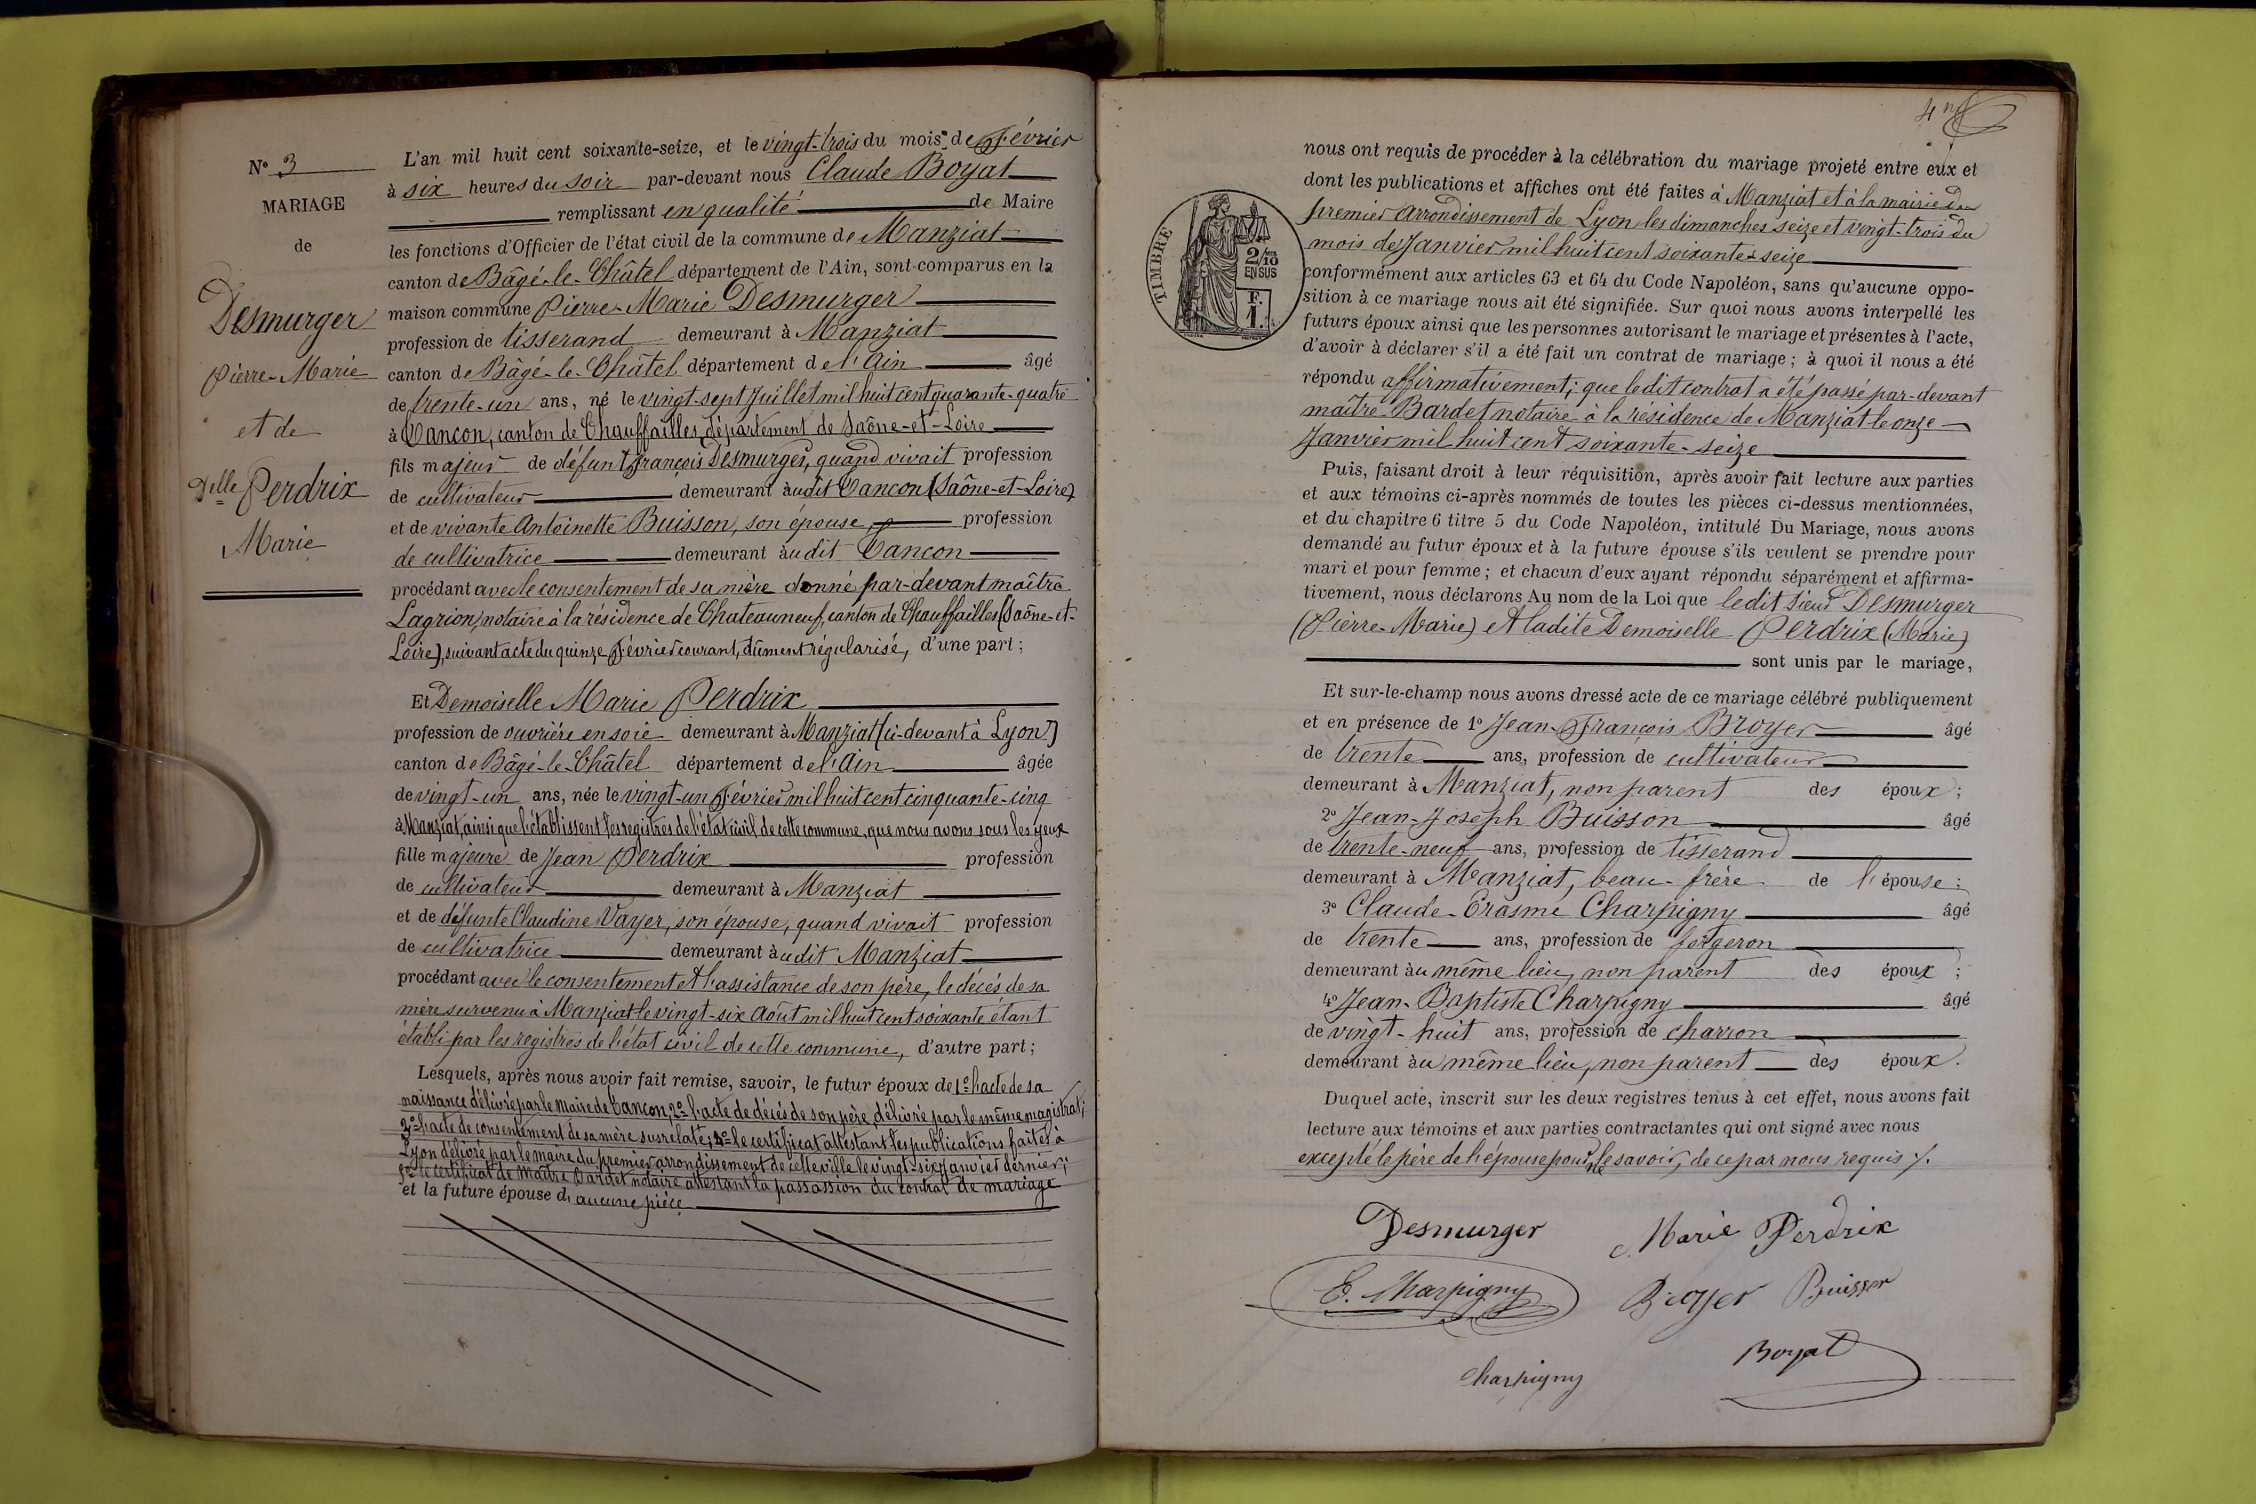 N° 3
MARIAGE
de
Desmurger
Pierre-Marie
et de
Delle Perdrix
Marie
L'an mil huit cent soixante-seize, et le vingt-trois du mois de Février
à six heures du soir par-devant nous Claude Boyat
remplissant en qualité de Maire
les fonctions d'Officier de l'état civil de la commune de Manziat
canton de Bâgé-le-Châtel département de l'Ain, sont comparus en la
maison commune Pierre-Marie Desmurger
profession de tisserand demeurant à Manziat
canton de Bâgé-le-Châtel département de l'Ain âgé
de trente-un ans, né le vingt-sept Juillet mil huit cent quarante-quatre
à Cancon, canton de Chauffailles, département de Saône-et-Loire
fils majeur de défunt François Desmurger, quand vivait profession
de cultivateur demeurant audit Cancon (Saône-et-Loire)
et de vivante Antoinette Buisson, son épouse, profession
de cultivatrice demeurant audit Cancon
procédant avec le consentement de sa mère donné par-devant maître
Lagrion, notaire à la résidence de Chateauneuf, canton de Chauffailles (Saône-et-
Loire), suivant acte du quinze Février courant, dûment régularisé, d'une part;
Et Demoiselle Marie Perdrix
profession de ouvrière en soie demeurant à Manziat (ci-devant à Lyon)
canton de Bâgé-le-Châtel département de l'Ain âgée
de vingt-un ans, née le vingt-un Février mil huit cent cinquante-cinq
à Manziat, ainsi que l'établissent les registres de l'état civil de cette commune, que nous avons sous les yeux
fille majeure de Jean Perdrix profession
de cultivateur demeurant à Manziat
et de défunte Claudine Vayer, son épouse, quand vivait profession
de cultivatrice demeurant audit Manziat
procédant avec le consentement et l'assistance de son père, le décès de sa
mère survenu à Manziat le vingt-six Août mil huit cent soixante étant
établi par les registres de l'état civil de cette commune, d'autre part;
Lesquels, après nous avoir fait remise, savoir, le futur époux de 1° l'acte de sa
naissance délivré par le Maire de Cancon, 2° l'acte de décès de son père, délivré par le même magistrat;
3° l'acte de consentement de sa mère susrelaté; 4° le certificat attestant les publications faites à
Lyon délivré par le maire du premier arrondissement de cette ville le vingt-six Janvier dernier;
5° le certificat de Maître Bardet notaire attestant la passassion du contrat de mariage
et la future épouse d' aucune pièce
4
TIMBRE
2/10
EN SUS
F.
1.
nous ont requis de procéder à la célébration du mariage projeté entre eux et
dont les publications et affiches ont été faites à Manziat et à la mairie du
premier arrondissement de Lyon, les dimanches seize et vingt-trois du
mois de Janvier mil huit cent soixante-seize
conformément aux articles 63 et 64 du Code Napoléon, sans qu'aucune oppo-
sition à ce mariage nous ait été signifiée. Sur quoi nous avons interpellé les
futurs époux ainsi que les personnes autorisant le mariage et présentes à l'acte,
d'avoir à déclarer s'il a été fait un contrat de mariage; à quoi il nous a été
répondu affirmativement; que ledit contrat a été passé par-devant
maître Bardet notaire à la résidence de Manziat le onze
Janvier mil huit cent soixante-seize
Puis, faisant droit à leur réquisition, après avoir fait lecture aux parties
et aux témoins ci-après nommés de toutes les pièces ci-dessus mentionnées,
et du chapitre 6 titre 5 du Code Napoléon, intitulé Du Mariage, nous avons
demandé au futur époux et à la future épouse s'ils veulent se prendre pour
mari et pour femme; et chacun d'eux ayant répondu séparément et affirma-
tivement, nous déclarons Au nom de la Loi que ledit sieur Desmurger
(Pierre-Marie) et ladite Demoiselle Perdrix (Marie)
sont unis par le mariage,
Et sur-le-champ nous avons dressé acte de ce mariage célébré publiquement
et en présence de 1° Jean-François Broyer âgé
de trente ans, profession de cultivateur
demeurant à Manziat, non parent des époux;
2° Jean-Joseph Buisson âgé
de trente-neuf ans, profession de tisserand
demeurant à Manziat, beau-frère de l'épouse;
3° Claude-Erasme Charpigny âgé
de trente ans, profession de forgeron
demeurant au même lieu, non parent des époux;
4° Jean-Baptiste Charpigny âgé
de vingt-huit ans, profession de charron
demeurant au même lieu, non parent des époux.
Duquel acte, inscrit sur les deux registres tenus à cet effet, nous avons fait
lecture aux témoins et aux parties contractantes qui ont signé avec nous
excepté le père de l'épouse pour ne le savoir, de ce par nous requis ./.
Desmurger
Marie Perdrix
E. Charpigny
Broyer
Buisson
Charpigny
Boyat